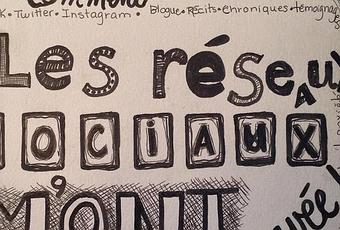 K • Twitter • Instagram • Blogue • Récits • chroniques • témoignag
Les réseaux
ociaux
M'ONT
vée